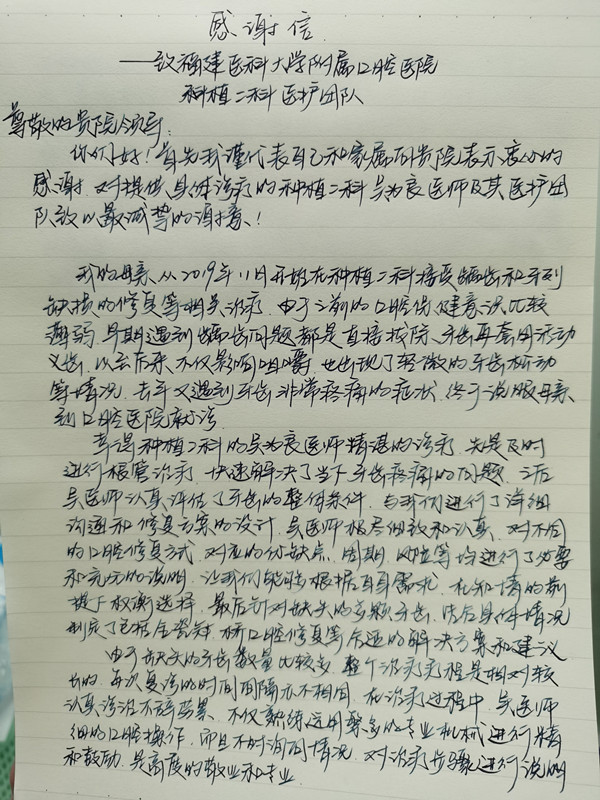 感谢信
——致福建医科大学附属口腔医院
种植二科医护团队
尊敬的贵院领导:
你们好!首先我谨代表自己和家属向贵院表示衷心的
感谢.对提供具体诊疗的种植二科吴为良医师及其医护团
队致以最诚挚的谢意!
我的母亲从2019年11月开始在种植二科接受龋齿和牙列
缺损的修复等相关治疗.由于之前的口腔保健意识比较
薄弱.早期遇到龋齿问题都是直接拔除.牙齿再套用活动
义齿.以至后来不仅影响咀嚼.也出现了轻微的牙齿松动
等情况.去年又遇到牙齿非常疼痛的症状.终于说服母亲
到口腔医院就诊
幸得种植二科的吴为良医师精湛的诊疗.先是及时
进行根管治疗.快速解决了当下牙齿疼痛的问题.之后
吴医师认真评估了牙齿的整体条件.与我们进行了详细
沟通和修复方案的设计.吴医师极尽细致和认真.对不同
的口腔修复方式.对应的优缺点.周期.收益等均进行了必要
和充分的说明.让我们能够根据自身需求.在知情的前
提下权衡选择.最后针对缺失的多颗牙齿.结合具体情况
制定了包括全瓷桥口腔修复等后续的解决方案和建议
由于缺失的牙齿数量比较多.整个治疗疗程是相对较
长的.每次复诊的时间间隔亦不相同.在治疗过程中.吴医师
认真诊治不辞劳累.不仅熟练运用繁多的专业机械进行精
细的口腔操作.而且不时询问情况.对治疗步骤进行说明
和鼓励.是高度的敬业和专业